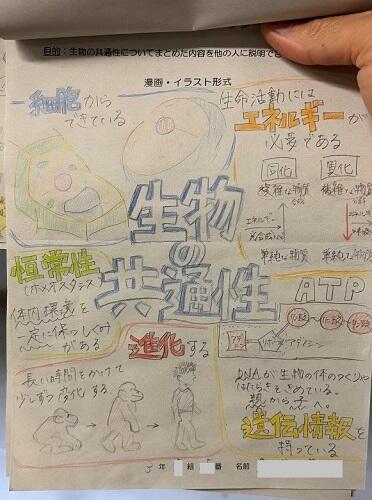 目的：生物の共通性についてまとめた内容を他の人に説明でき
漫画・イラスト形式
細胞から
できている
生命活動には
エネルギーが
必要である
同化
異化
複雑な物質
複雑な物質
エネルギー
単純な物質
単純な物質
生物
の
共通性
恒常性
(ホメオスタシス)
体内環境を
一定に保つしくみ
がある
ATP
リン酸
リン酸
リン酸
アデノシン
進化する
長い時間をかけて
少しずつ変化する
DNAが生物の体のつくりや
はたらきをきめている。
親から子へ。
遺伝情報を
持っている
年 組 番 名前